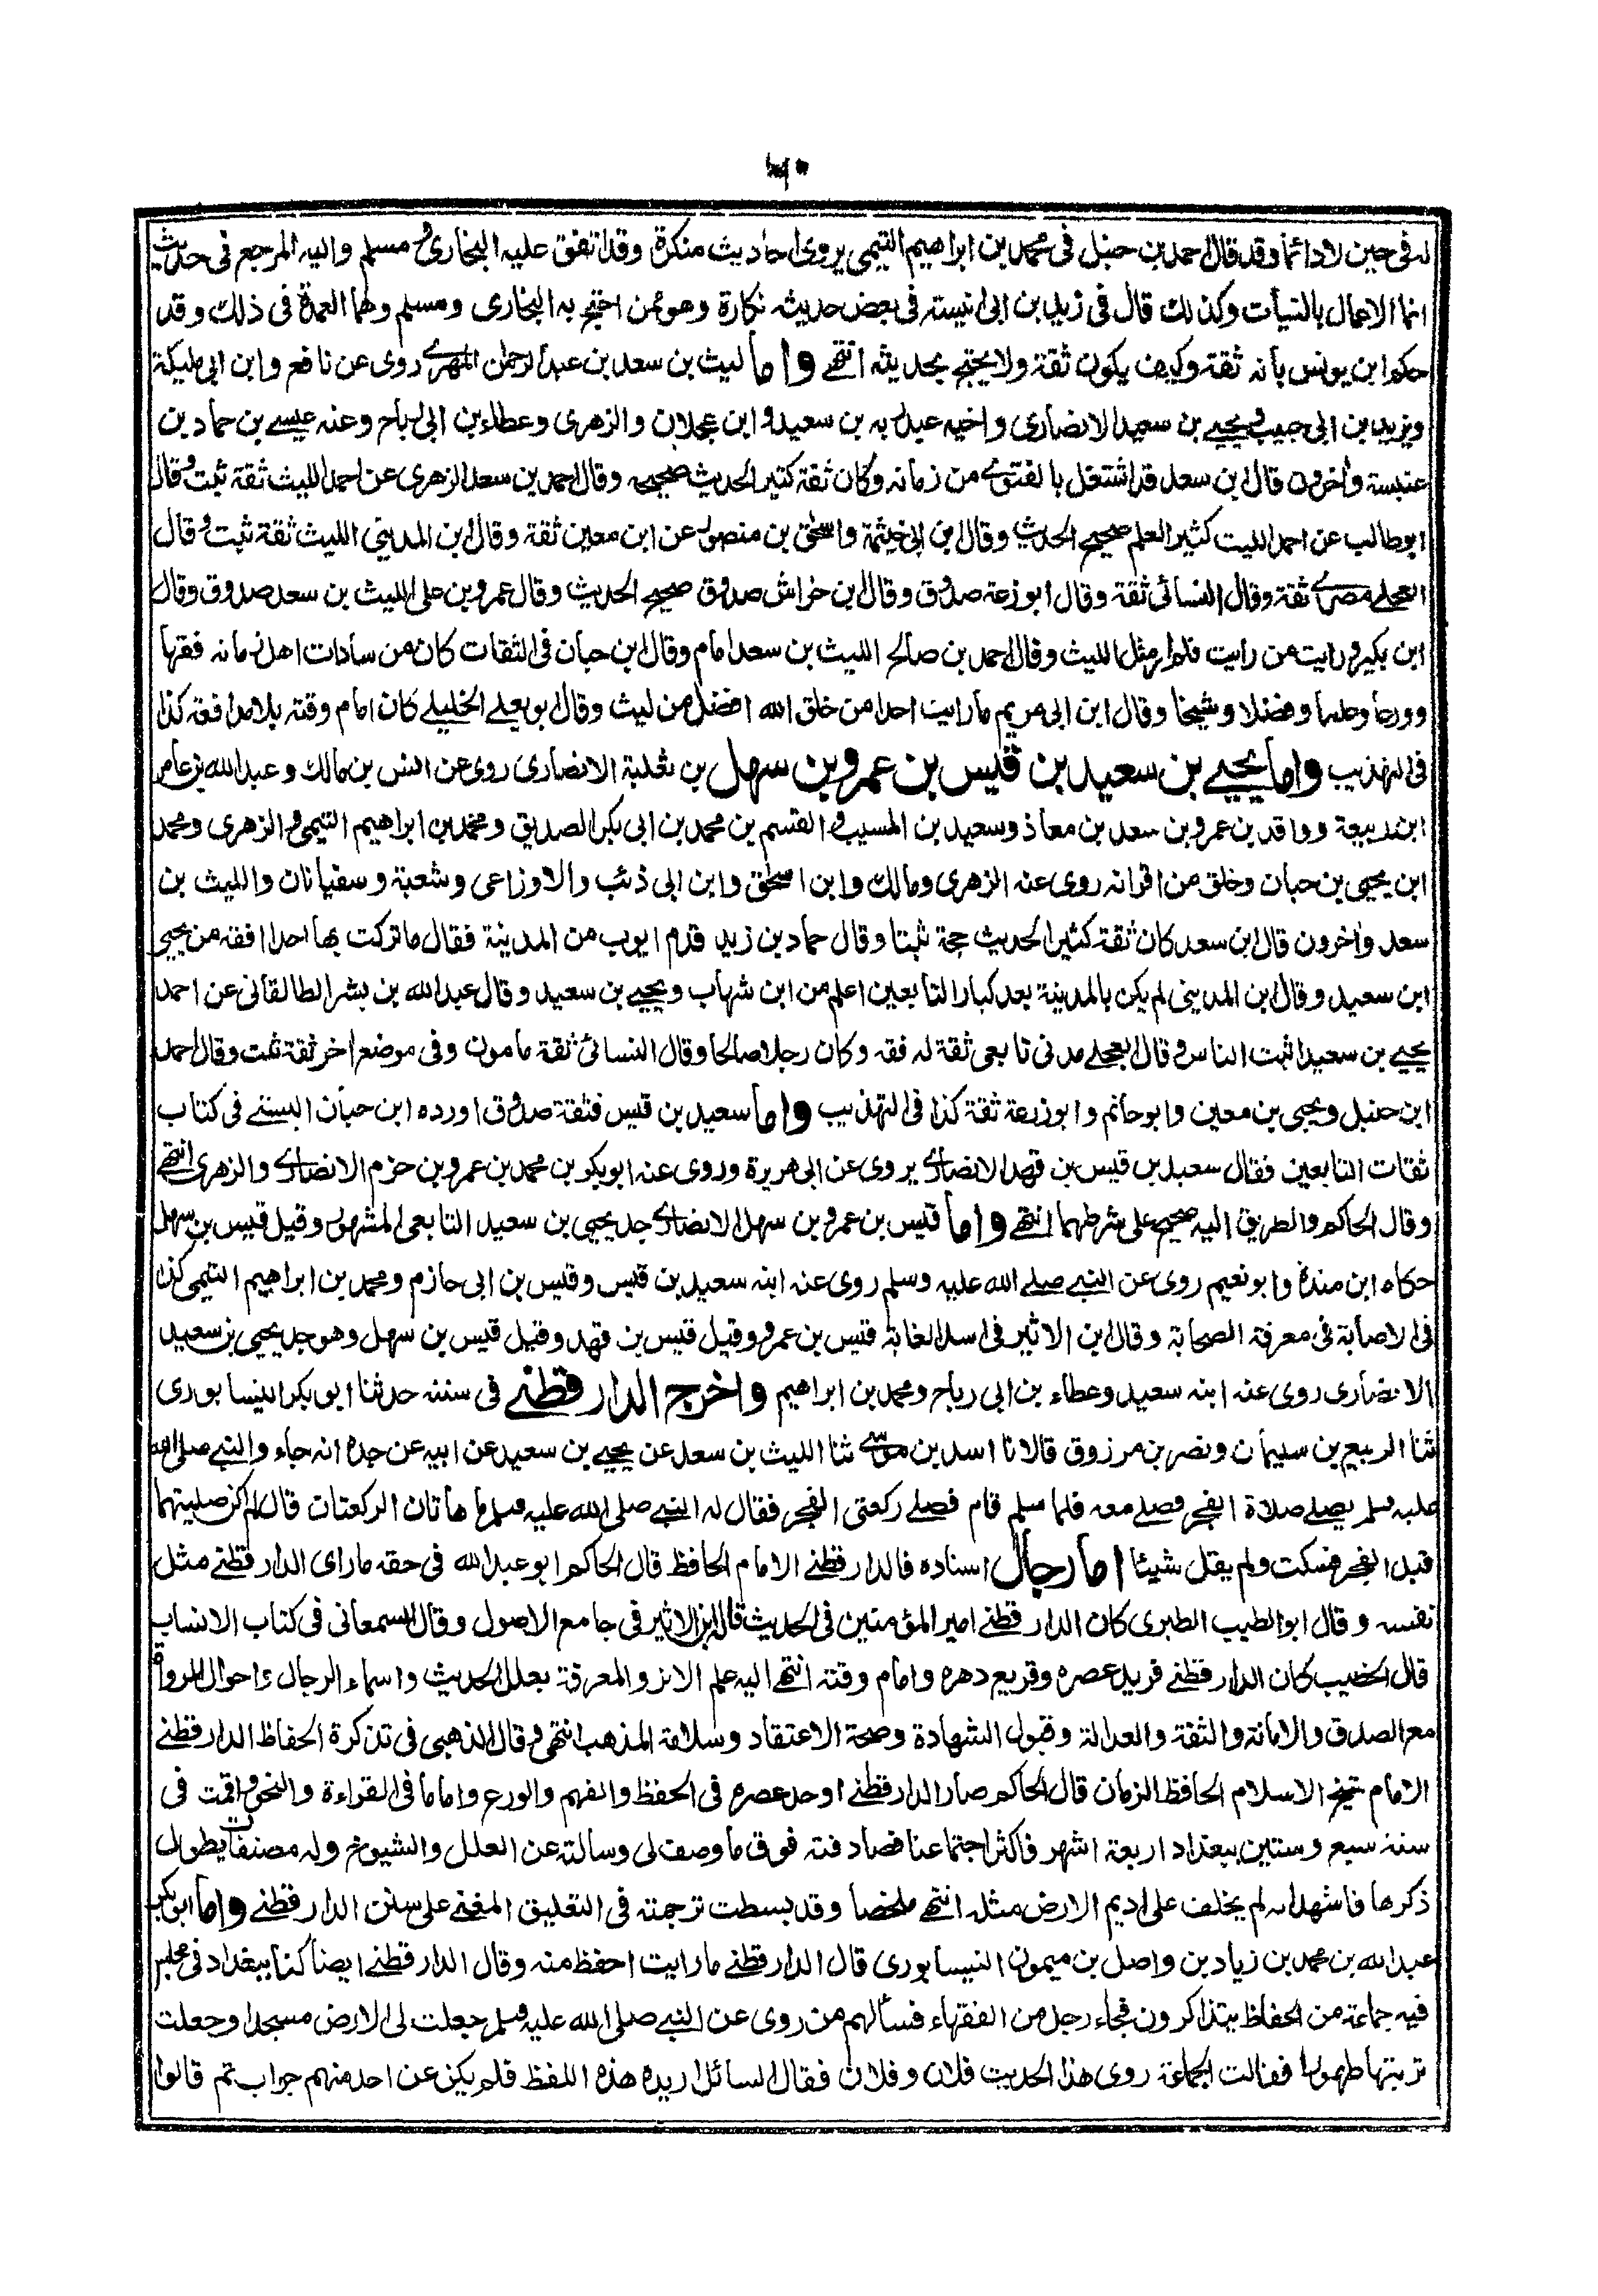 ٦٠
له فى حين لا دائما وقد قال احمد بن حنبل فى محمد بن ابراهيم التيمى يروى احاديث منكرة وقد اتفق عليه البخارى و مسلم واليه المرجع فى حديث
انما الاعمال بالنيأت وكذلك قال فى زيد بن ابى انيسة فى بعض حديثه نكارة وهو ممن احتج به البخارى ومسلم وهما العمدة فى ذلك وقد
حكم ابن يونس بأنه ثقة وكيف يكون ثقة ولا يحتج بحديثه انتهے واما ليث بن سعد بن عبد الرحمان المصرے روى عن نافع وابن ابى مليكة
ويزيد بن ابى حبيب و يحيے بن سعيد الانصارى واخيه عبد ربه بن سعيد و ابن عجلان والزهرى وعطاء بن ابى رباح وعنه عيسے بن حماد بن
عنبسة واخرون قال ابن سعد قد اشتغل بالفتوے من زمانه وكان ثقة كثير الحديث صحيحه وقال احمد بن سعد الزهرى عن احمد الليث ثقة ثبت وقال
ابو طالب عن احمد الليث كثير العلم صحيح الحديث وقال ابن ابى خيثمة واسحق بن منصور عن ابن معين ثقة وقال ابن المدينى الليث ثقة ثبت و قال
العجلے مصرے ثقة وقال النسائى ثقة وقال ابو زرعة صدوق وقال ابن خراش صدوق صحيح الحديث وقال عمرو بن على الليث بن سعد صدوق وقال
ابن بكير ورايت من رايت فلم ار مثل الليث وقال احمد بن صالح الليث بن سعد امام وقال ابن حبان فى الثقات كان من سادات اهل زمانه فقها
وورعا وعلما وفضلا وشيخا وقال ابن ابى مريم ما رايت احدا من خلق الله افضل من ليث وقال ابو يعلے الخليلے كان امام وقته بلا مدافعة كذا
فى التهذيب واما يحيے بن سعيد بن قيس بن عمرو بن سهل بن ثعلبة الانصارى روى عن انس بن مالك و عبد الله بن عامر
ابن ربيعة وواقد بن عمرو بن سعد بن معاذ وسعيد بن المسيب و القسم بن محمد بن ابى بكر الصديق ومحمد بن ابراهيم التيمى و الزهرى ومحمد
ابن يحيى بن حبان وخلق من اقرانه روى عنه الزهرى ومالك وابن اسحق وابن ابى ذئب والاوزاعى وشعبة وسفيانان والليث بن
سعد واخرون قال ابن سعد كان ثقة كثير الحديث حجة ثبتا وقال حماد بن زيد قدم ايوب من المدينة فقال ما تركت بها احدا افقه من يحيى
ابن سعيد وقال ابن المدينى لم يكن بالمدينة بعد كبار التابعين اعلم من ابن شهاب ويحيے بن سعيد وقال عبد الله بن بشر الطالقانى عن احمد
يحيے بن سعيد اثبت الناس و قال العجلے مدنى تابعى ثقة له فقه وكان رجلا صالحا وقال النسائى ثقة مامون وفى موضع اخر ثقة ثبت وقال احمد
ابن حنبل ويحيى بن معين وابو حاتم وابو زرعة ثقة كذا فى التهذيب واما سعيد بن قيس فثقة صدوق اورده ابن حبان البستے فى كتاب
ثقات التابعين فقال سعيد بن قيس بن قهد الانصارے يروى عن ابى هريرة وروى عنه ابو بكر بن محمد بن عمرو بن حزم الانصارے والزهرى انتهے
وقال الحاكم والطريق اليه صحيح على شرطهما انتهے واما قيس بن عمرو بن سهل الانصارے جد يحيى بن سعيد التابعى المشهور وقيل قيس بن سهل
حكاه ابن مندة وابو نعيم روى عن النبے صلے الله عليه وسلم روى عنه ابنه سعيد بن قيس وقيس بن ابى حازم ومحمد بن ابراهيم التيمى كذا
فى الاصابة فى معرفة الصحابة وقال ابن الاثير فى اسد الغابة قيس بن عمرو وقيل قيس بن قهد وقيل قيس بن سهل وهو جد يحيى بن سعيد
الانصارى روى عنه ابنه سعيد وعطاء بن ابى رباح ومحمد بن ابراهيم واخرج الدار قطنے فى سننه حدثنا ابو بكر النيسابورى
ثنا الربيع بن سليمان ونصر بن مرزوق قالا نا اسد بن موسے ثنا الليث بن سعد عن يحيے بن سعيد عن ابيه عن جده انه جاء والنبے صلى الله
عليه وسلم يصلے صلاة الفجر فصلے معه فلما سلم قام فصلے ركعتى الفجر فقال له النبے صلى الله عليه وسلم ما هاتان الركعتان قال لم اكن صليتهما
قبل الفجر فسكت ولم يقل شيئا اما رجال اسناده فالدار قطنے الامام الحافظ قال الحاكم ابو عبد الله فى حقه ما راى الدار قطنے مثل
نفسه وقال ابو الطيب الطبرى كان الدار قطنے امير المؤمنين فى الحديث قاله ابن الاثير فى جامع الاصول وقال السمعانى فى كتاب الانساب
قال الخطيب كان الدار قطنے فريد عصره وقريع دهره وامام وقته انتهے اليه علم الاثر والمعرفة بعلل الحديث واسماء الرجال واحوال الرواة
مع الصدق والامانة والثقة والعدالة وقبول الشهادة وصحة الاعتقاد وسلامة المذهب انتهى و قال الذهبى فى تذكرة الحفاظ الدار قطنے
الامام شيخ الاسلام الحافظ الزمان قال الحاكم صار الدار قطنے اوحد عصره فى الحفظ والفهم والورع واماما فى القراءة والنحو واقمت فى
سنة سبع وستين ببغداد اربعة اشهر فاكثر اجتماعنا فصادفته فوق ما وصف لى وسالته عن العلل والشيوخ وله مصنفات يطول
ذكرها فاشهد انه لم يخلف على اديم الارض مثله انتهے ملخصا وقد بسطت ترجمته فى التعليق المغنے على سنن الدار قطنے واما ابو بكر
عبد الله بن محمد بن زياد بن واصل بن ميمون النيسابورى قال الدار قطنے ما رايت احفظ منه وقال الدار قطنے ايضا كنا ببغداد فى مجلس
فيه جماعة من الحفاظ يتذاكرون فجاء رجل من الفقهاء فسألهم من روى عن النبے صلى الله عليه وسلم جعلت لى الارض مسجدا وجعلت
تربتها طهورا فقالت الجماعة روى هذا الحديث فلان وفلان فقال السائل اريد هذه اللفظ فلم يكن عن احد منهم جواب ثم قالوا